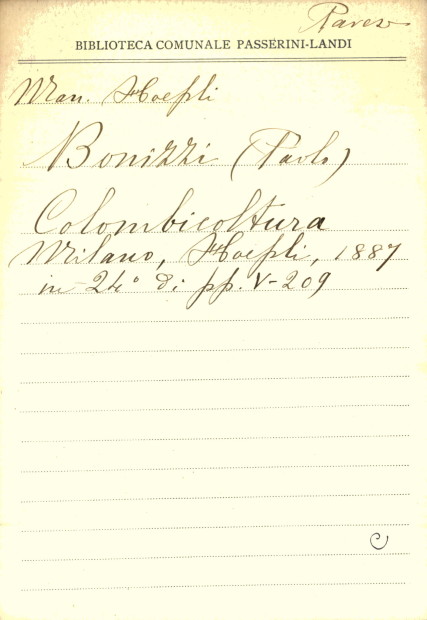 Pavesi
BIBLIOTECA COMUNALE PASSERINI-LANDI
Man. Hoepli
Bonizzi (Paolo)
Colombicoltura
Milano, Hoepli, 1887
in 24° di pp. V-209
C